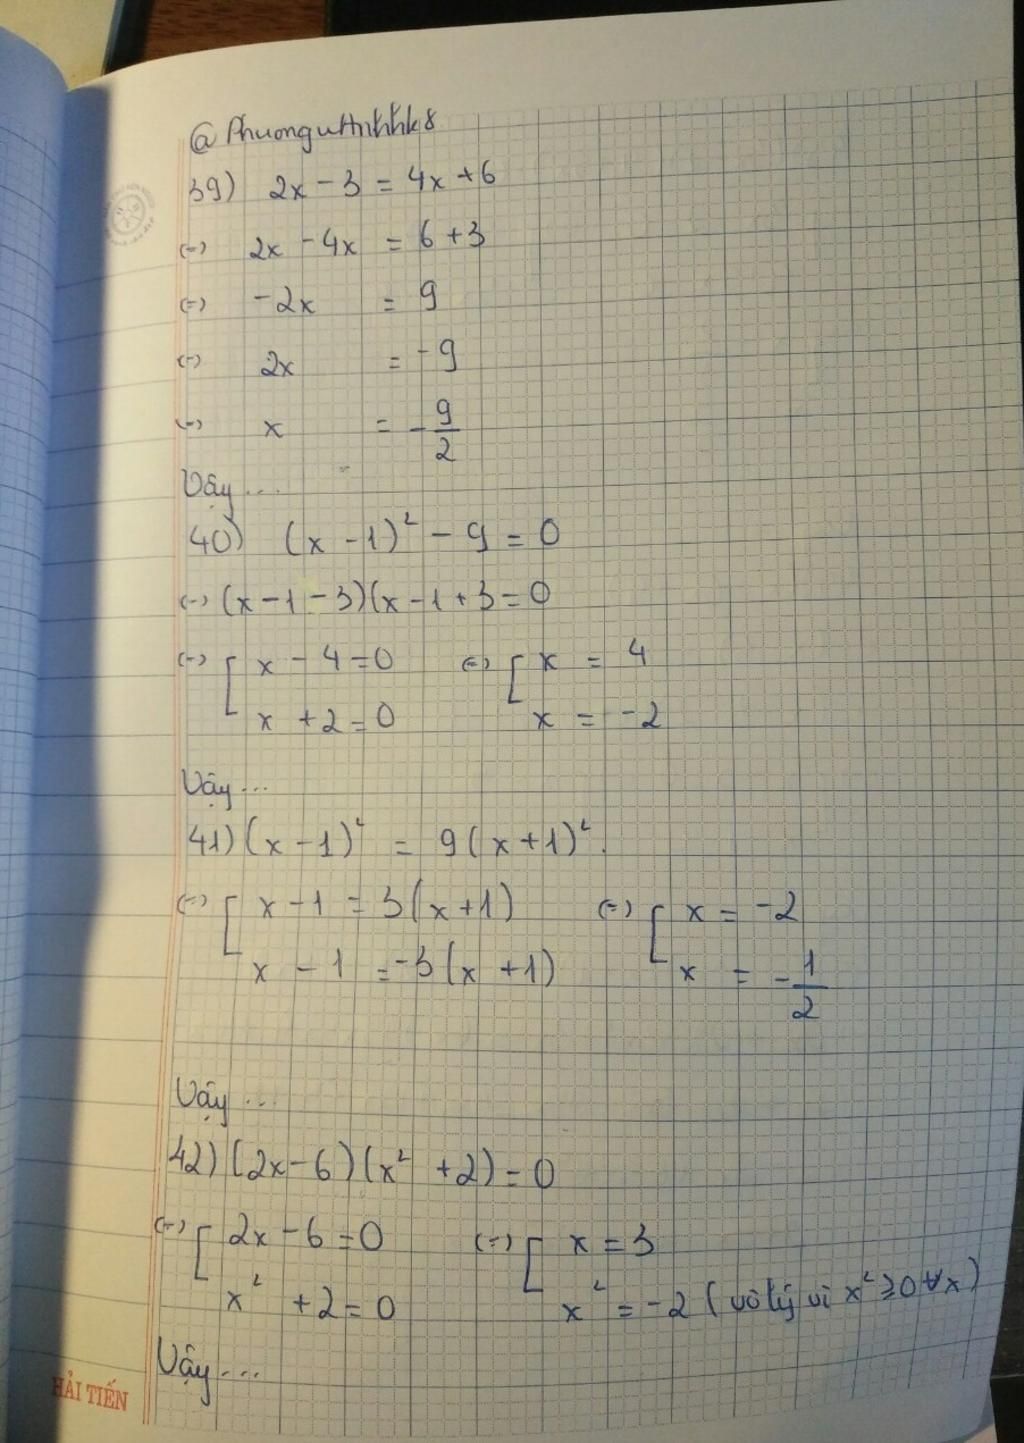 @PhuonguHnhhk8
39) 2x - 3 = 4x + 6
(=) 2x - 4x = 6 + 3
(=) -2x = 9
(=) 2x = -9
(=) x = -9/2
Vậy...
40) (x - 1)² - 9 = 0
(=) (x - 1 - 3)(x - 1 + 3 = 0
(=) [ x - 4 = 0 (=) [ x = 4
x + 2 = 0 x = -2
Vậy...
41) (x - 1)² = 9(x + 1)².
(=) [ x - 1 = 3(x + 1) (=) [ x = -2
x - 1 = -3(x + 1) x = -1/2
Vậy...
42) (2x - 6)(x² + 2) = 0
(=) [ 2x - 6 = 0 (=) [ x = 3
x² + 2 = 0 x² = -2 (vô lý vì x² ≥ 0 ∀x)
Vậy...
HẢI TIẾN